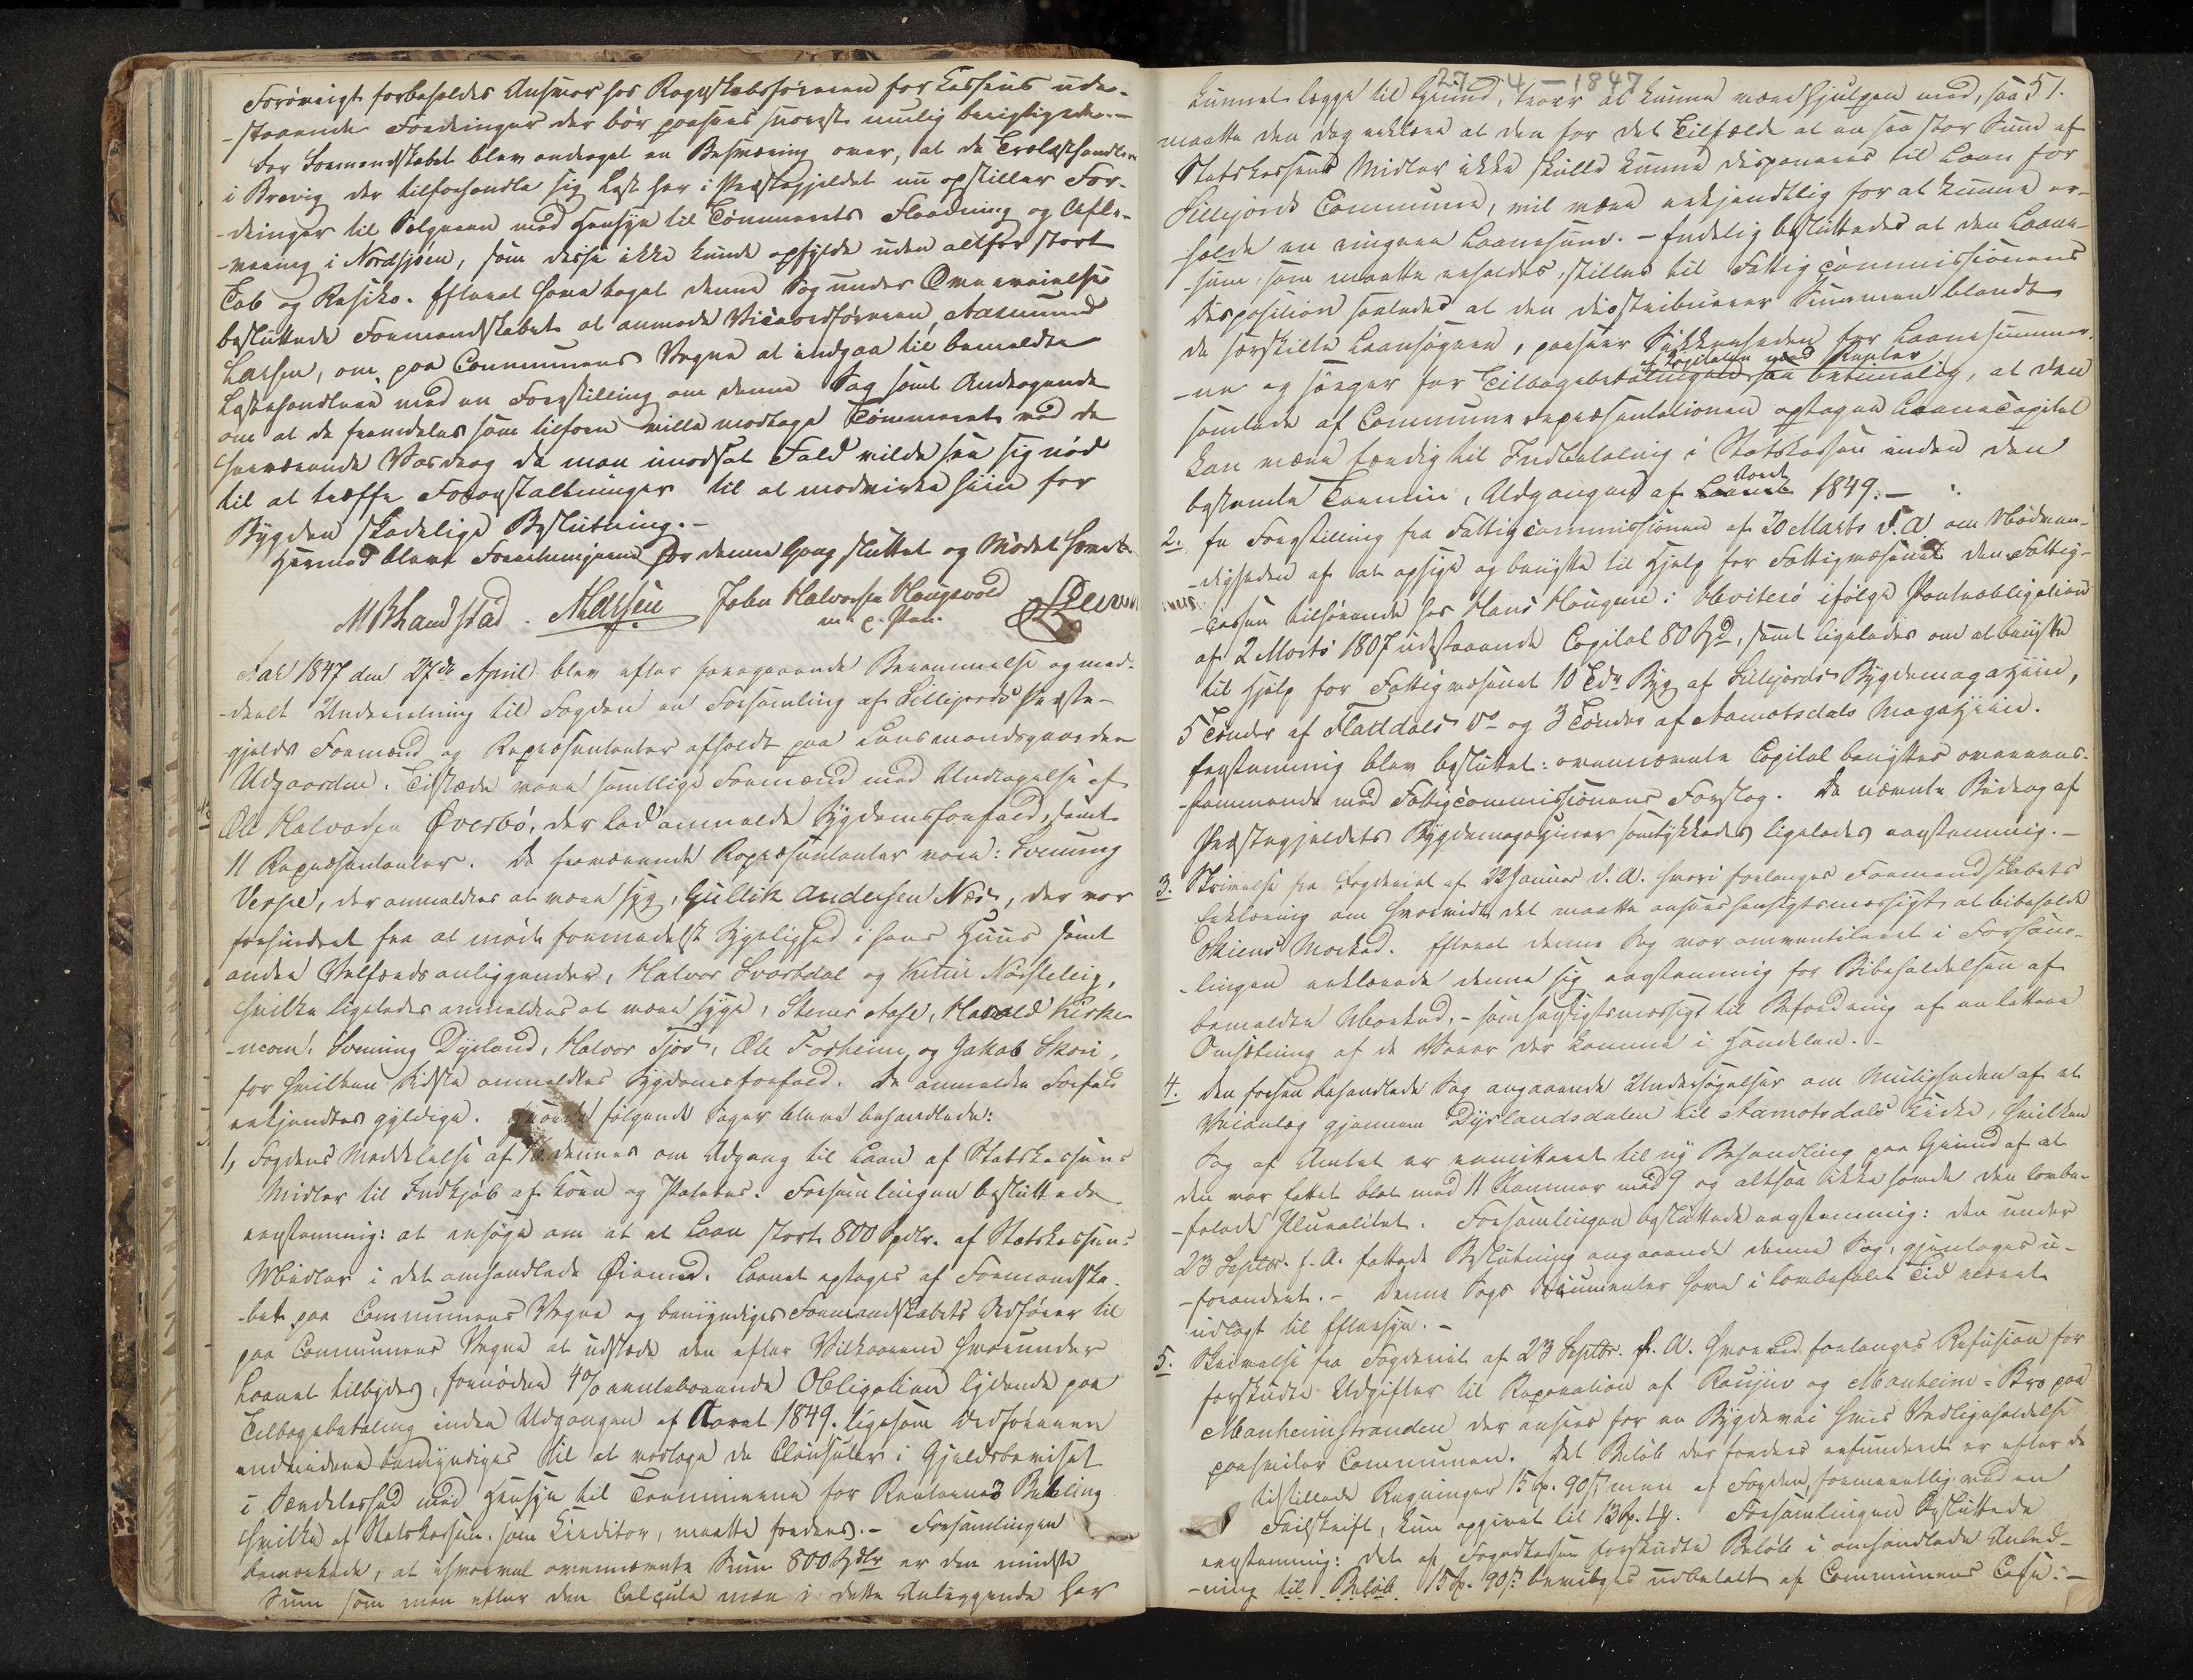 Forøvrigt forbeholdes Ansvar hos Regnskabsføreren for Cassens ude-
-staaende Fordringer der bør paasees snarest mulig berigtigede. -
For Formandskabet blev andraget en Besværing over, at de Trælasthandlere
i Brevig der tilforhandle sig Last her i Præstegjeldet nu opstiller For-
-dringer til Sælgeren med Hensyn til Tømmerets Flaadning og Afle-
-vering i Nordsjøen, som disse ikke kunde opfylde uden altfor stort
Tab og Resiko. Efterat have taget denne Sag under Overveielse
besluttede Formandskabet at anmode Viceordføreren, Aasmund
Larsen, om paa Communens Vegne at indgaa til bemeldte
Lasthandlere med en Forestilling om denne Sag samt Andragende
om at de fremdeles som tilforn ville modtage Tømmeret ved de
herværende Vasdrag da man i modsat Fald vilde see sig nød
til at træffe Foranstaltninger til at modvirke hiin for
Bygden skadelige Beslutning. -
Hermed blev Forretningerne for denne Gang sluttet og Mødet hævet.
M B Landstad. ALarsen John Halvorsen Haugevold
m. p. Pen.
Aar 1847 den 27de April blev efter foregaaende Berammelse og med-
-deelt Underretning til Fogden en Forsamling af Sillejords Præste-
gjelds Formænd og Repræsentanter afholdt paa Lensmandsgaarden
Udgaarden. Tilstæde vare samtlige Formænd med Undtagelse af
Ole Halvorsen Øverbø, der lod anmelde Sygdomsforfald, samt
11 Repræsentanter. De fraværende Repræsentanter vare: Svenung
Vesper, der anmeldtes at være syg, Gullik Andersen Næs, der var
forhindret fra at møde formedelst Sygelighed i hans Huus samt
andre Velfærdsanliggender, Halvor Svartdal og Kittil
hvilke ligeledes anmeldtes at være syge, Stener Aase, Harald Kirke-
-moen, Svenung Dyrland, Halvor Tjøs, Ole Forheim og Jakob Skori,
for hvilken sidste anmeldtes Sygdomsforfald. De anmeldte Forfald
erkjendtes gyldige. følgende Sager bleve behandlede:
1, Fogdens Meddelelse af dennes om Adgang til Laan af Statskassens
Midler til Indkjøb af Korn og Poteter. Forsamlingen besluttede
eenstemmig: at ansøge om at et Laan stort 800 Spdlr. af Statskassens
Midler i det omhandlede Øiemed. Laanet optages af Formandska-
-bet paa Communens Vegne og bemyndiges Formandskabets Ordfører til
paa Communens Vegne at udstæde den efter Vilkaarene hvorunder
Laanet tilbydes, fornødne 4% rentebærende Obligation lydende paa
Tilbagebetaling inden Udgangen af Aaret 1849. ligesom Ordføreren
endvidere bemyndiges til at vedtage de Clausuler i Gjeldsbeviset
i Særdeleshed med Hensyn til Terminerne for Renternes Betaling
hvilke af Statskassen, som Creditor, maatte fordres. - Forsamlingen
bemærkede, at ihvorvel ovennævnte Sum 800 Spdlr er den mindste
Sum som man efter den Calcule man i dette Anliggende har
27 - 4 - 1847
51.
kunnet lægge til Grund, troer at kunne være hjulpen med, saa
maatte den dog erklære at den for det Tilfælde at en saa stor Sum af
Statskassens Midler ikke skulde kunne disponeres til Laan for
Sillejords Commune, vil være erkjendtlig for at kunne er-
-holde en ringere Laanesum. - Endelig besluttedes at den Laane-
-sum som maatte erholdes, stilles til Fattigcommissionens
Disposition saaledes at den distribuerer Summen blandt
de forskille Laansøgere, paaseer Sikkerheden for Laanesummer-
af Capitalen med Renter
-ne og sørger for Tilbagebetalingen saa betimelig, at den
samlede af Communerepræsentationen optagne Laanecapital
kan være færdig til Indbetaling i Statskassen inden den
bestemte Termin, Udgangen af Aaret 1849. -
2. En Forestilling fra Fattigcommissionen af 20 Marts d. A. om Nødven-
-digheden af at opsige og benytte til Hjelp for Fattigvæsenet den Fattig-
-cassen tilhørende hos Hans Haugene i Hviteseid ifølge Panteobligation
af 2 Marts 1807 udestaaende Capital 80 Spd, samt ligeledes om at benytte
til Hjelp for Fattigvæsenet 10 Tdr Byg af Sillejords Bygdemagaziin,
5 Tønder af Flatdals Do og 3 Tønder af Aamotsdals Magaziin.
Eenstemmig blev besluttet: ovennævnte Capital benyttes overeens-
-stemmende med Fattigcommissionens Forslag. De nævnte Bidrag af
Præstegjeldets Bygdemagaziner samtykkedes ligeledes eenstemmig. -
3. Skrivelse fra Fogderiet af 22 Januar d. A. hvori forlanges Formandskabets
Erklæring om hvorvidt det maatte ansees hensigtsmæssigt at bibeholde
Skiens Marked. Efterat denne Sag var omventileret i Forsam-
-lingen erklærede denne sig eenstemmig for Bibeholdelsen af
bemeldte Marked, - som hensigtsmæssigt til Befordring af en lettere
Omsætning af de Varer der komme i Handelen. -
4. Den forhen behandlede Sag angaaende Undersøgelser om Muligheden af et
Veianlæg gjennem Dyrlandsdalen til Aamotsdals Kirke, hvilken
Sag af Amtet er remitteret til ny Behandling paa Grund af at
den var fattet blot med 11 Stemmer mod 9 og altsaa ikke havde den lovbe-
-falede Pluralitet. Forsamlingen besluttede eenstemmig: den under
23 Septbr. f. A. fattede Beslutning angaaende denne Sag, gjentages u-
-forandret. - Denne Sags Documenter have i lovbefalet Tid været
udlagt til Eftersyn. -
5. Skrivelse fra Fogderiet af 23 Septbr. f. A. hvorved forlanges Refusion for
forskudte Udgifter til Reparation af Raujuv og Manheim-Bro paa
Manheimstranden der ansees for en Bygdevei hvis Vedligeholdelse
paahviler Communen. Det Beløb der fordres refunderet er efter de
tilstillede Regninger 15 Sp. 90 ß men af Fogden, formeentlig ved en
Feilskrift, kun opgivet til 13 Sp. Forsamlingen besluttede
eenstemmig: det af Fogedkassen forskudte Beløb i omhandlede Anled-
-ning til Beløb 15 Sp. 90 ß bevilges udbetalt af Communens Casse. -